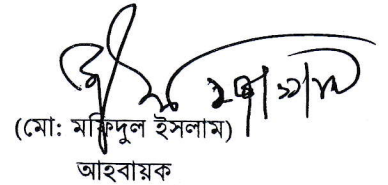 (মো: মফিদুল ইসলাম)
আহবায়ক